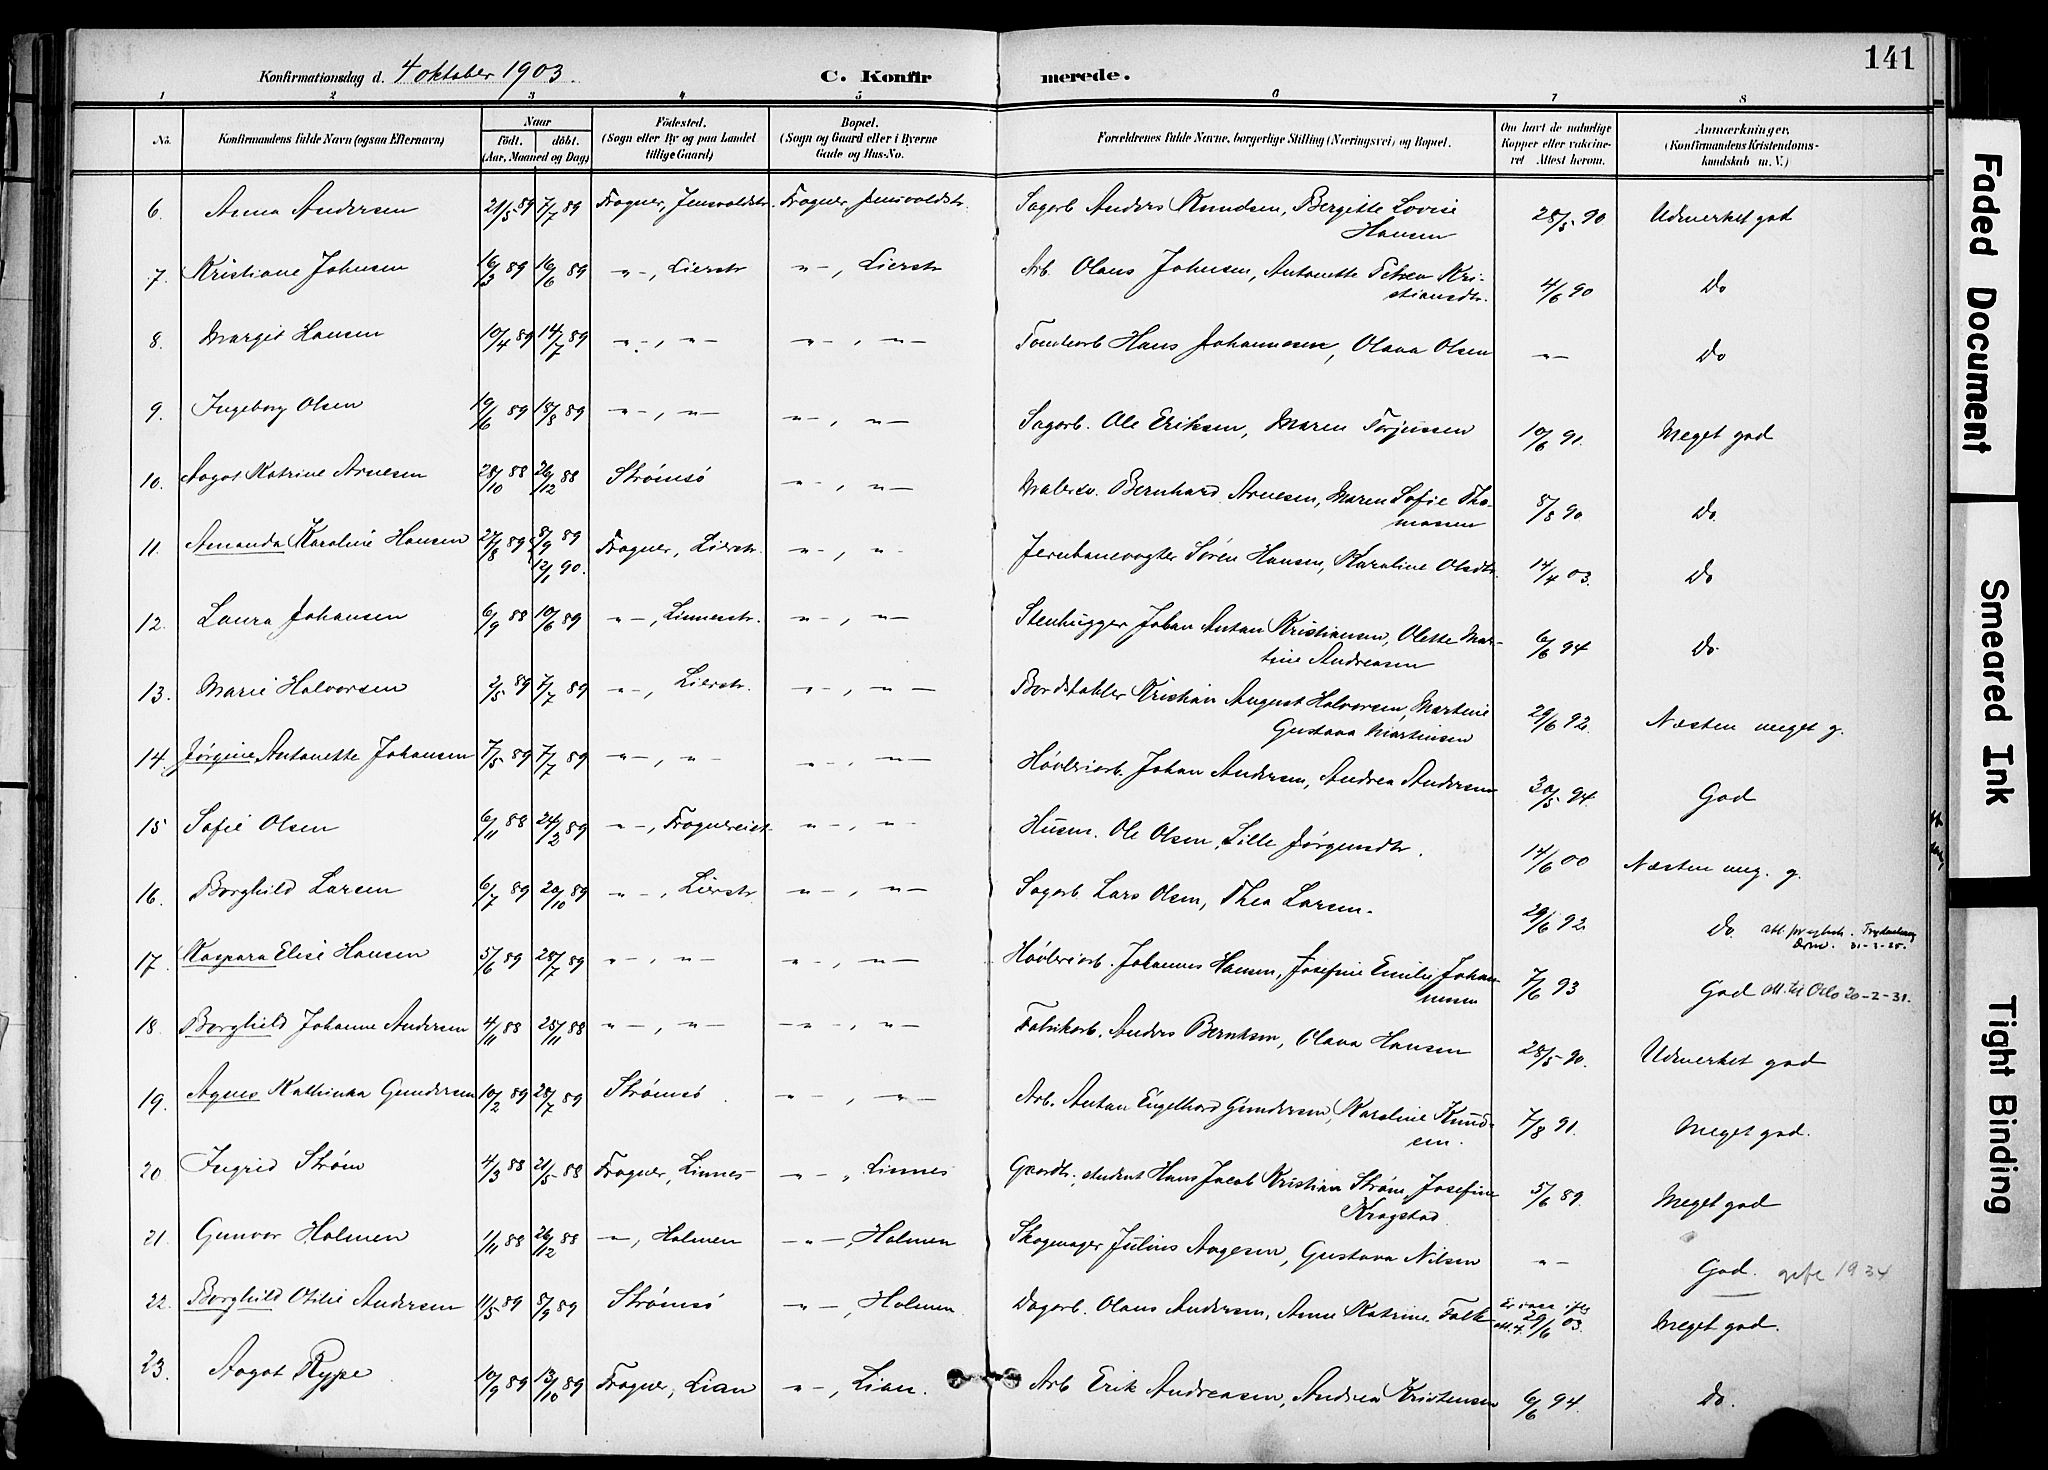 141
Konfirmationsdag d. 4 oktober 1903. C. Konfirmerede.
1 2 3 4 5 6 7 8
No. Konfirmandens fulde Navn (ogsaa Efternavn) Naar födt. döbt. (Aar, Maaned og Dag) Födested. (Sogn eller By og paa Landet tillige Gaard) Bopæl. (Sogn og Gaard eller i Byerne Gade og Hus-No. Forældrenes fulde Navne, borgerlige Stilling (Næringsvei) og Bopæl. Om havt de naturlige Kopper eller vaccineret Attest herom. Anmærkninger. (Konfirmandens Kristendomskundskab m. V.)
6. Anna Andersen 21/5 89 7/7 89 Frogner, Jensvoldstr. Frogner, Jensvoldstr. Sagarb. Anders Knudsen, Bergitte Lovise Hansen 28/5 90 Udmerket god
7. Kristiane Johnsen 16/3 89 16/6 89 "–, Lierstr "–, Lierstr Arb. Olaus Johnsen, Antonette Petrea Kristiansdtr. 4/6 90 Do
8. Margit Hansen 10/4 89 14/7 89 "–, "– "–, "– Tomtearb Hans Johannesen, Olava Olsen "– Do
9. Ingeborg Olsen 19/6 89 18/8 89 "–, "– "–, "– Sagarb. Ole Eriksen, Maren Torjussen 10/6 91. Meget god
10. Aagot Katrine Arnesen 28/10 88 26/12 88 Strømsø "–, "– Malersv. Bernhard Arnesen, Maren Sofie Thomassen 8/8 90 Do.
11. Amanda Karoline Hansen 27/8 89 8/9 89 12/1 90. Frogner, Lierstr. "–, "– Jernbanevogter Søren Hansen, Karoline Olsdtr. 14/4 03. Do
12. Laura Johansen 6/9 88 10/6 89 "–, Linnesstr. "–, "– Stenhugger Johan Antan Kristiansen, Olette Martine Andreasen 6/6 94 Do
13. Marie Halvorsen 2/5 89 7/7 89 "–, Lierstr. "–, "– Bordstabler Kristian August Halvorsen, Martine Gustava Martinsen 29/6 92. Næsten meget g.
14. Jørgine Antonette Johansen 7/5 89 7/7 89 "–, "– "–, "– Høvleriarb. Johan Andersen, Andrea Andersen 30/5 94. God
15 Sofie Olsen 6/11 88 24/2 89 "–, Frognereiet. "–, "– Husm. Ole Olsen, Lille Jørgensdtr. 14/6 00 Næsten meg. g.
16. Borghild Larsen 6/7 89 20/10 89 "–, Lierstr. "–, "– Sagarb. Lars Olsen, Thea Larsen. 29/6 92. Do. 31-3-25.
17. Kaspara Elise Hansen 5/6 89 28/7 89 "–, "– "–, "– Høvleriarb. Johannes Hansen, Josefine Emilie Johannesen 7/6 93 God att. til Oslo 20-2-31.
18. Borghild Johanne Andersen 4/11 88 25/11 88 "–, "– "–, "– Fabrikarb. Anders Berntsen, Olava Hansen 28/5 90. Udmerket god
19. Agnes Kathinka Gundersen 10/2 89 28/7 89 Strømsø. "–, "– Arb. Antan Engelhard Gundersen, Karoline Knudsen. 7/8 91. Meget god.
20 Ingrid Strøm 4/3 88 21/5 88 Frogner, Linnes "–, Linnes Gaardbr., student Hans Jacob Kristian Strøm, Josefine Krogstad. 5/6 89. Meget god
21. Gunvor Holmen 1/11 88 26/12 88 "–, Holmen "–, Holmen Skomager Julius Aagesen, Gustava Nilsen "– God. gift 1934
22. Borghild Otilie Andersen 11/5 89 8/9 89 Strømsø "–, Holmen. Dagarb. Olaus Andersen, Anne Katrine Falk Er vacc. ifg. att. f. 29/6 03. Meget god.
23. Aagot Rype 10/9 89 13/10 89 Frogner, Lian "–, Lian. Arb Erik Andreasen, Andrea Kristensen 6/6 94. Do.
Faded Document
Smeared Ink
Tight Binding